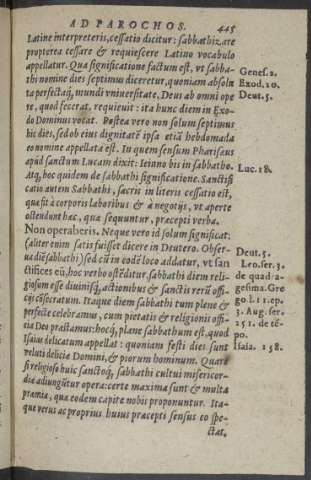 AD PAROCHOS. 445
Latine interpreteris, cessatio dicitur: sabbatizare
propterea cessare & requiescere Latino vocabulo
appellatur. Qua significatione factum est, vt sabba-
thi nomine dies septimus diceretur, quoniam absolu
ta perfectaq́; mundi vniuersitate, Deus ab omni ope
re, quod fecerat, requieuit: ita hunc diem in Exo-
do Dominus vocat. Postea vero non solum septimus
hic dies, sed ob eius dignitatē ipsa etiā hebdomada
eo nomine appellata est. In quem sensum Pharisæus
apud sanctum Lucam dixit: Ieiuno bis in sabbatho.
Atq́; hoc quidem de sabbathi significatione. Sanctifi
catio autem Sabbathi, sacris in literis cessatio est,
quæ fit à corporis laboribus & à negotijs, vt aperte
ostendunt hæc, quæ sequuntur, præcepti verba.
Non operaberis. Neque vero id solum significat:
(aliter enim satis fuisset dicere in Deutero. Obser-
ua diē sabbathi) sed cū in eodē loco addatur, vt san
ctifices eū, hoc verbo ostēditur, sabbathi diem reli-
giosum esse diuinisq́; actionibus & sanctis rerū offi-
cijs cōsecratum. Itaque diem sabbathi tum plene &
perfecte celebramus, cum pietatis & religionis offi-
cia Deo præstamus: hocq́; plane sabbathum est, quod
Isaias delicatum appellat: quoniam festi dies sunt
veluti deliciæ Domini, & piorum hominum. Quare
si religioso huic sanctoq́; sabbathi cultui misericor-
diæ adiungūtur opera: certe maxima sunt & multa
præmia, quæ eodem capite nobis proponuntur. Ita-
que verus ac proprius huius præcepti sensus eo spe-
ctat,
Genes. 2.
Exod. 20.
Deut. 5.
Luc. 18.
Deut. 5.
Leo. ser. 3.
de quadra-
gesima. Gre
go. l. 11. ep.
3. Aug. ser.
251. de tē-
po.
Isaia. 158.